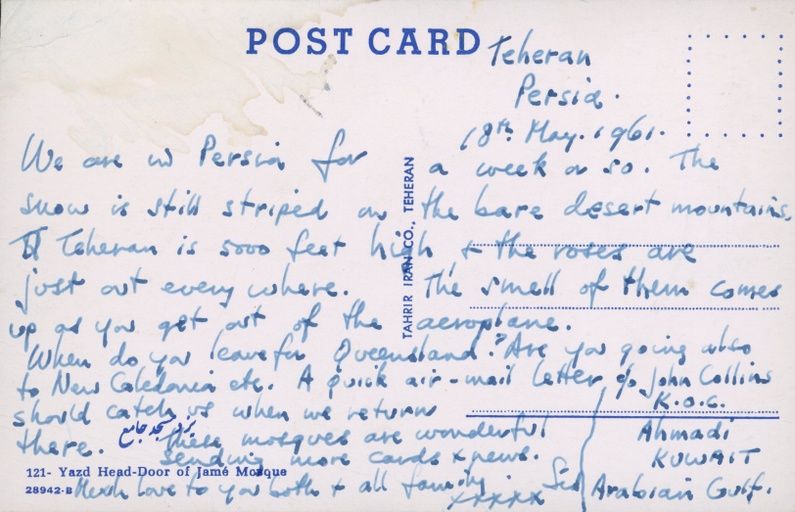 POST CARD
Teheran
Persia.
18th May. 1961.
We are in Persia for a week or so. The
snow is still striped on the bare desert mountains.
Teheran is 5000 feet high & the roses are
just out every where. The smell of them comes
up as you get out of the aeroplane.
When do you leave for Queensland? Are you going also
to New Caledonia etc. A quick air-mail letter c/o John Collins
should catch us when we return K.O.C.
there. These mosques are wonderful Ahmadi
Sending more cards & news. KUWAIT
Much love to you both & all family. Arabian Gulf.
xxxxx
یزد مسجد جامع
121- Yazd Head-Door of Jamé Mosque
28942-B
TAHRIR IRAN CO., TEHERAN